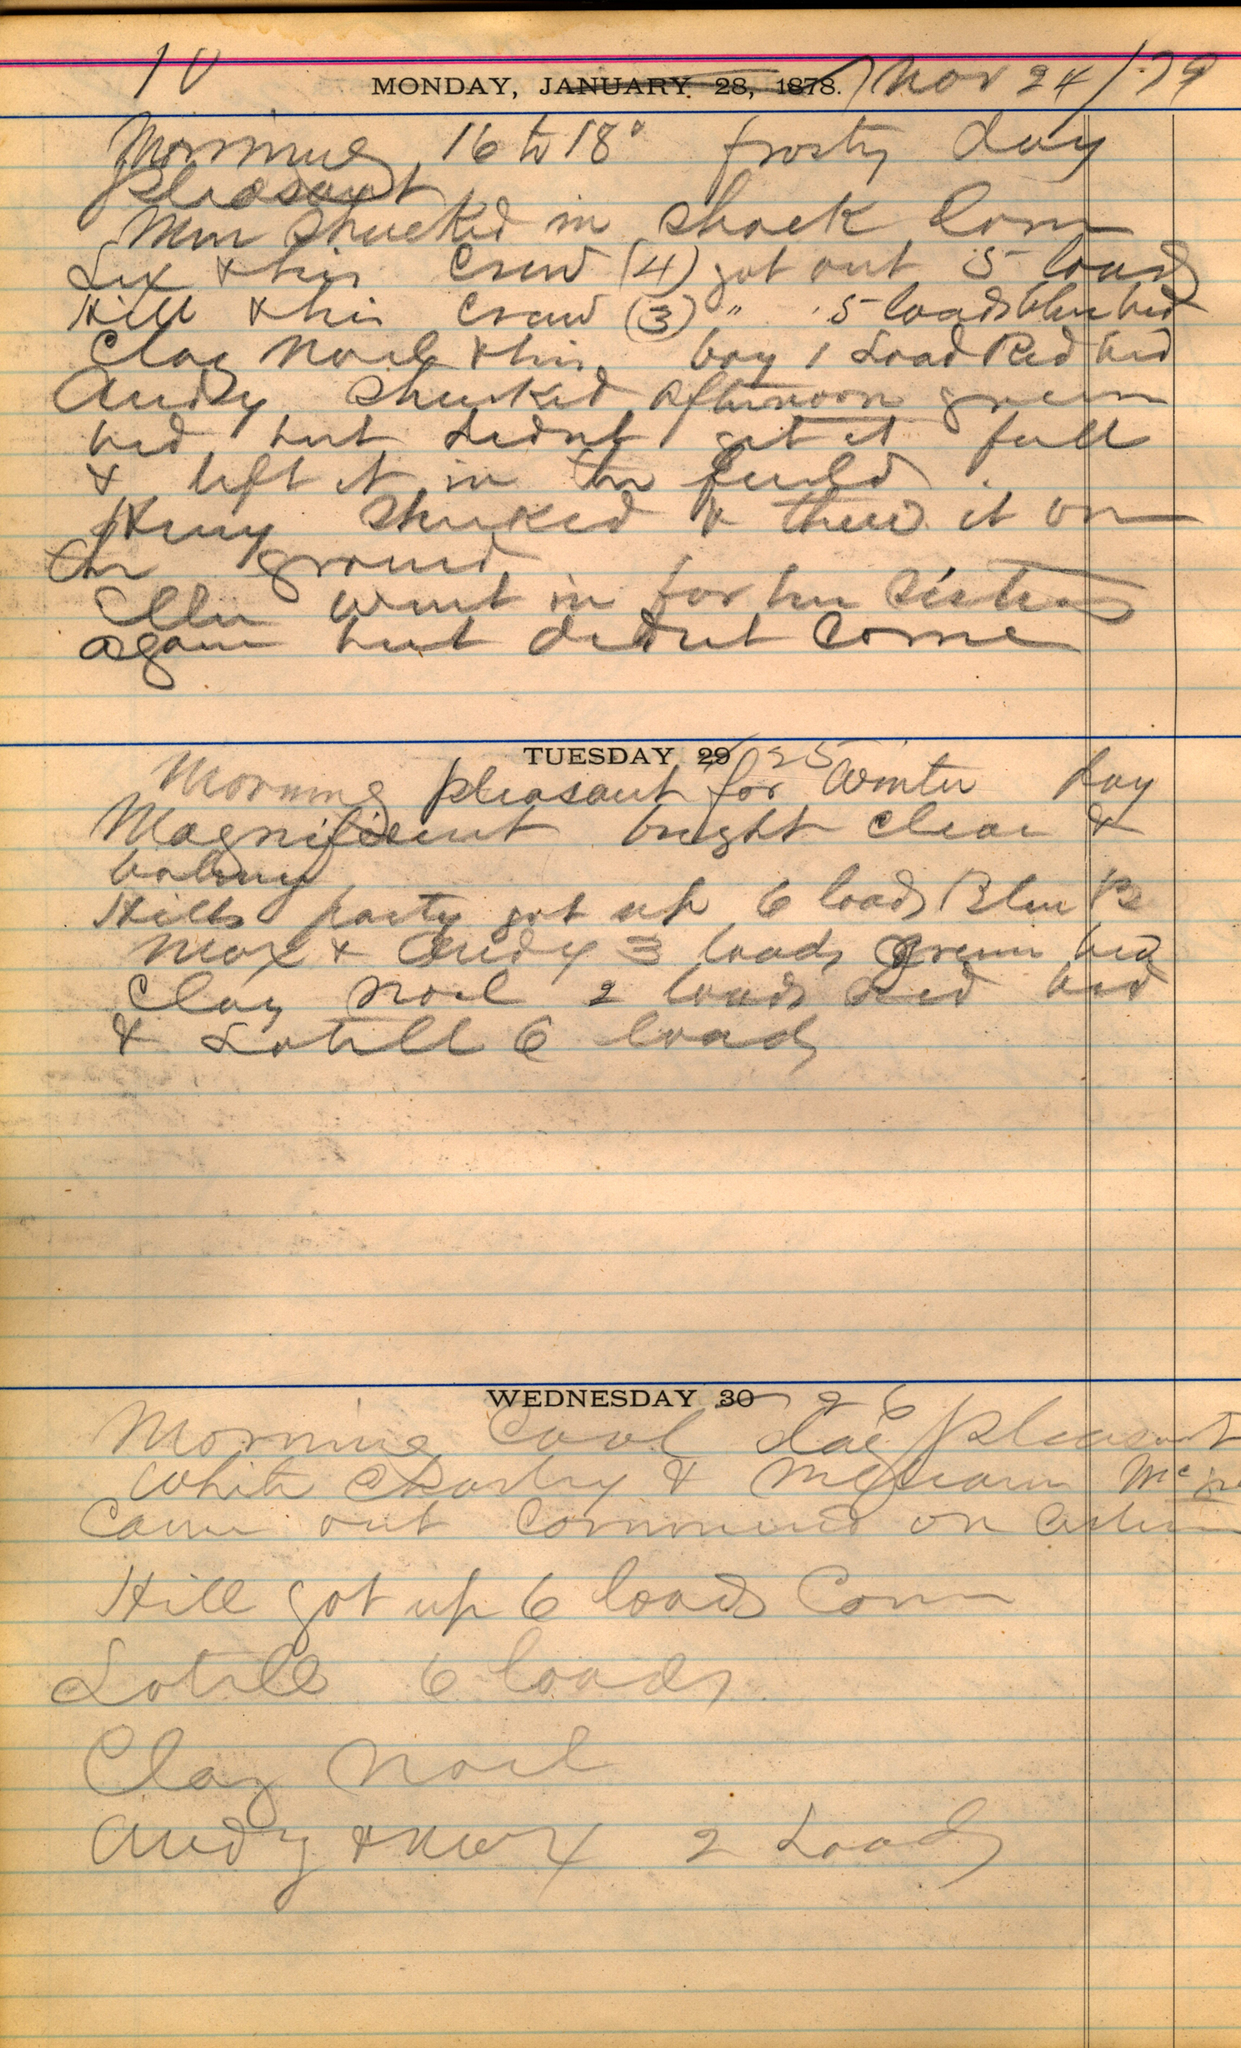 10
MONDAY, JANUARY 28, 1878. Nov 24/79
Morning 16 to 18° frosty day
pleasant
Men shucked in shock Corn
Lix & his Crew (4) got out 5 loads
Hill & his Crew (3) " 5 loads blue bed
Clay Noel & his boy 1 Load Red bed
Andy shucked afternoon green
bed but didnt get it full
& left it in the field
Henry shucked & threw it on
the ground
Ellen went in for her Sisters
again but didnt Come
TUESDAY 29 25
Morning pleasant for Winter day
Magnificent bright clear &
balmy
Hills party got up 6 loads Blue B
Max & Andy 3 loads green bed
Clay Noel 2 loads Red bed
& Lotill 6 loads
WEDNESDAY 30 26
Morning Cool day pleasant
White Charley &
Came out Commenced on
Hill got up 6 loads Corn
Lotill 6 loads
Clay Noel
Andy & Max 2 Loads